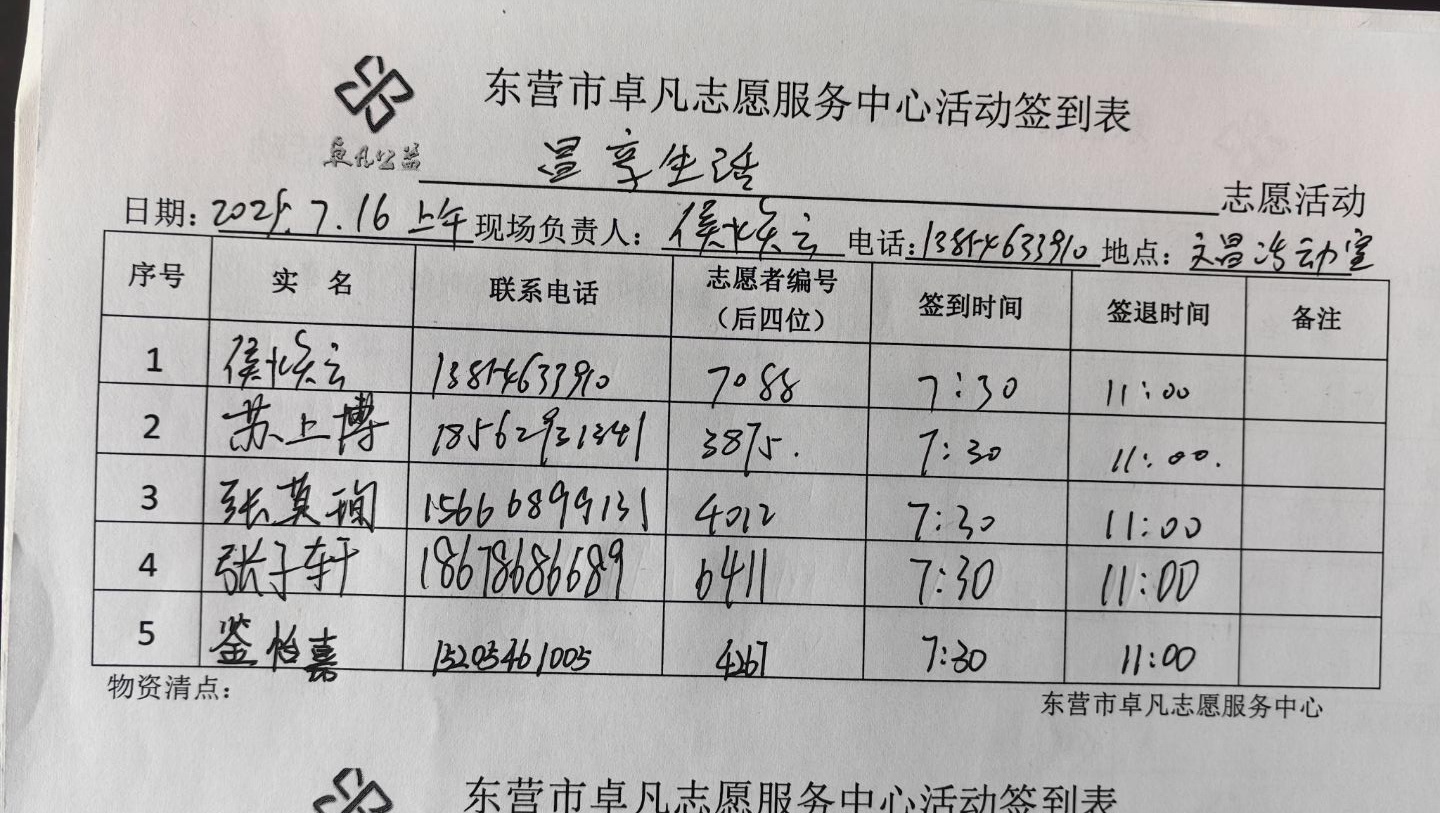 东营市卓凡志愿服务中心活动签到表
卓凡公益
享生活 志愿活动
日期: 2025.7.16 上午 现场负责人: 侯焕云 电话: 13854633910 地点: 文昌活动室
序号 实 名 联系电话 志愿者编号（后四位） 签到时间 签退时间 备注
1 侯焕云 13854633910 7088 7:30 11:00
2 苏上博 18562931341 3875. 7:30 11:00.
3 张英 15666899131 4012 7:30 11:00
4 张子轩 18678686689 6411 7:30 11:00
5 怡嘉 15205461005 4267 7:30 11:00
物资清点:
东营市卓凡志愿服务中心
东营市卓凡志愿服务中心活动签到表